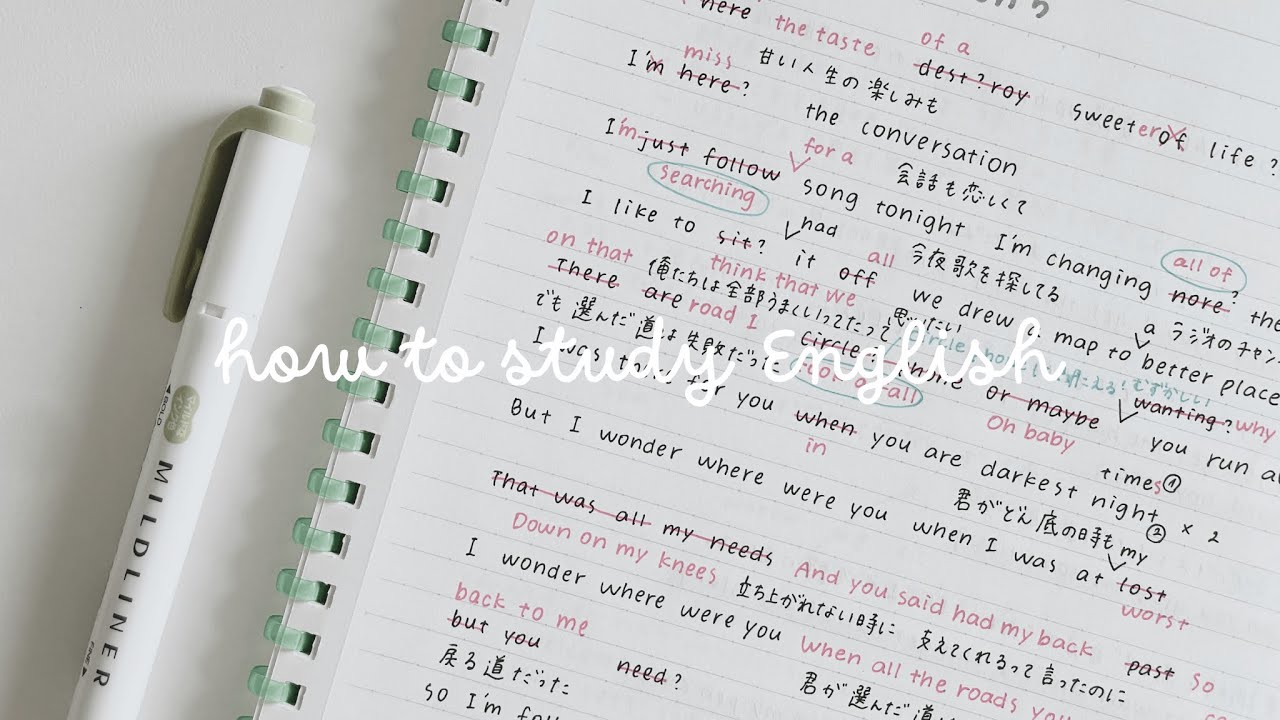 here the taste of a
miss 甘い人生の楽しみも dest?roy sweeter of life?
I'm here? the conversation
I'm just follow for a 会話も恋しくて
searching song tonight I'm changing all of
I like to sit? had it all off 今夜歌を探してる nore? the
on that think that we we drew a map to better place
There are road I 俺たちは全部うまくいってたって思いたい
でも選んだ道は失敗だった circle
I was there for you Oh baby or maybe wanting? why
But I wonder where were you when I was at my lost
when in you are darkest night times① ② × 2 you run
君がどん底の時も worst
That was all my needs
Down on my knees 立ち上がれない時に And you said had my back past so
I wonder where were you when all the roads you
支えてくれるって言ったのに
back to me
but you need? 君が選んだ道
戻る道だった
so I'm
how to study English
MILDLINER
BOLD